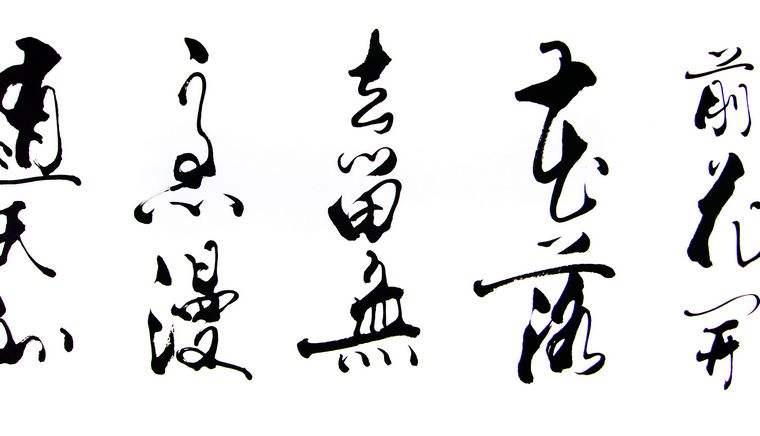 前花開
花落
去留無
意漫
隨天外